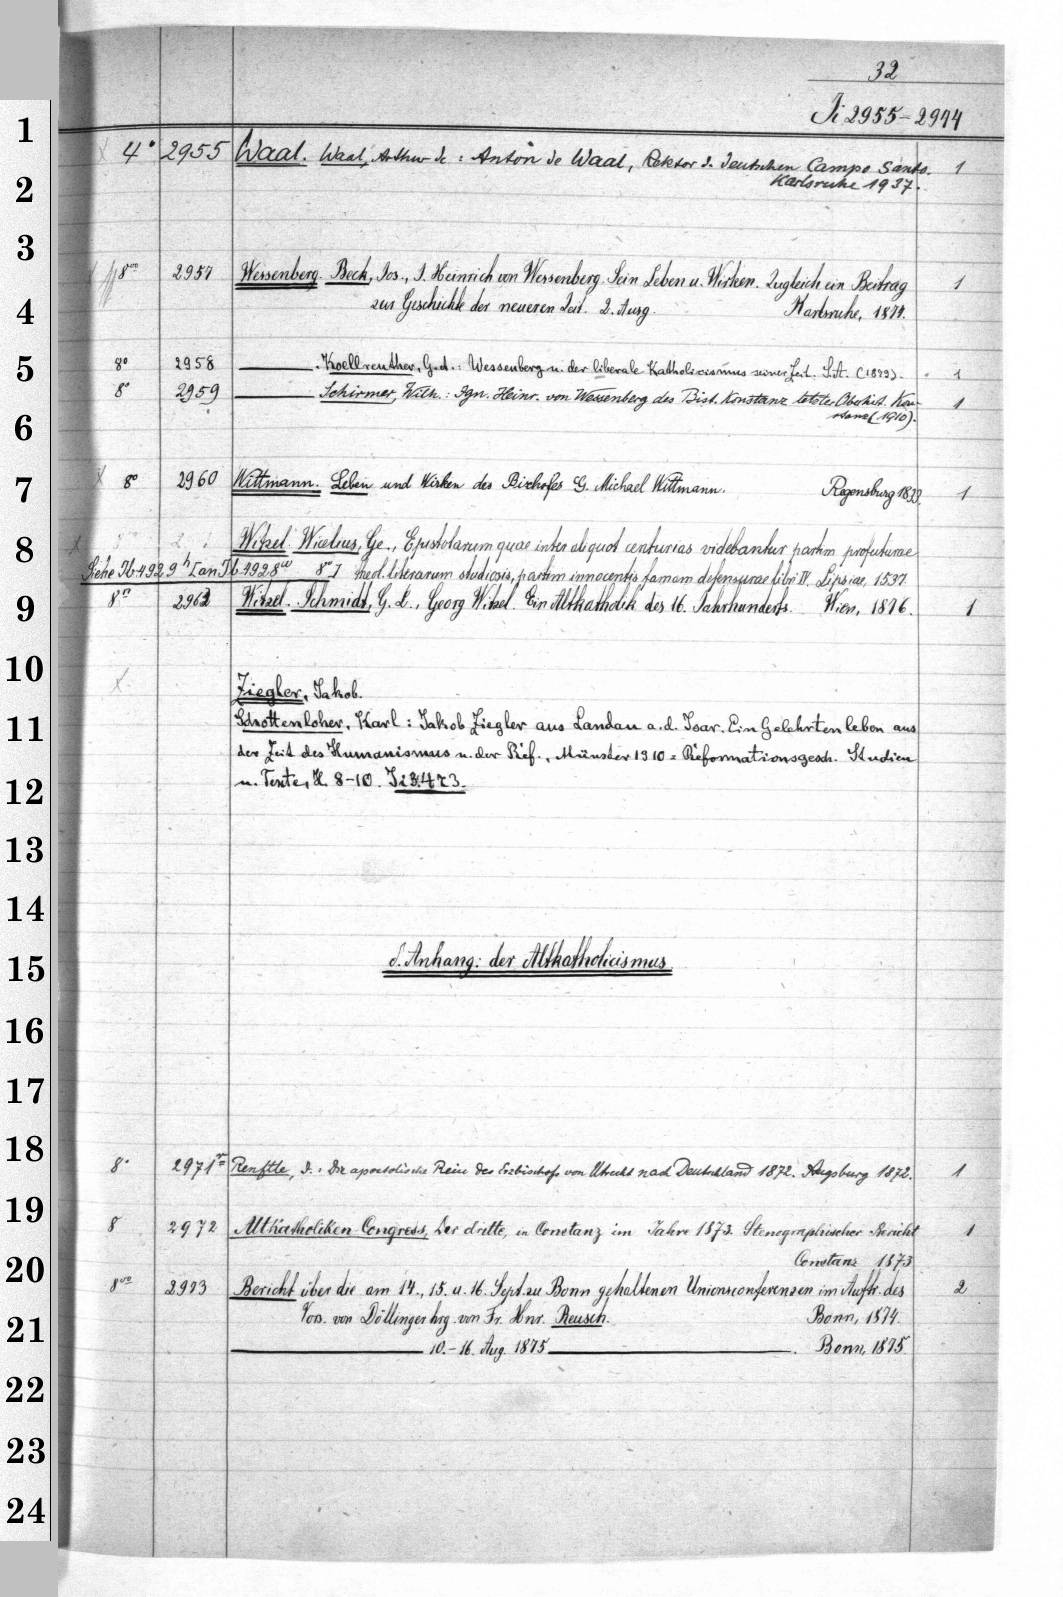 32
Ji 2955-2974
1
4° 2955 Waal. Waal, Arthur de : Anton de Waal, Rektor d. Deutschen Campo Santo. 1
Karlsruhe 1937.
2
3
8vo 2957 Wessenberg. Beck, Jos., J. Heinrich von Wessenberg. Sein Leben u. Wirken. Zugleich ein Beitrag 1
4 zur Geschichte der neueren Zeit. 2. Ausg. Karlsruhe, 1874.
5 8° 2958 ——. Koellreuther, G. d.: Wessenberg u. der liberale Katholicismus seiner Zeit. S.A. (1873). 1
8° 2959 —— Schirmer, Wilh.: Ign. Heinr. von Wessenberg des Bist. Konstanz letzter Oberhirt. Kon- 1
stanz (1910).
6
7 8° 2960 Wittmann. Leben und Wirken des Bischofes G. Michael Wittmann. Regensburg 1833. 1
8 Witzel. Wicelius, Ge., Epistolarum quae inter aliquot centurias videbantur partim profuturae
Siehe Jb 4929h [an Jb 4928 8°] theol. literarum studiosis, partim innocentis famam defensurae libri IV. Lipsiae, 1537.
9 8° 2962 Witzel. Schmidt, G. L., Georg Witzel. Ein Altkatholik des 16. Jahrhunderts. Wien, 1876. 1
10
Ziegler, Jakob.
11 Schottenloher, Karl : Jakob Ziegler aus Landau a.d. Isar. Ein Gelehrtenleben aus
der Zeit des Humanismus u. der Ref., Münster 1910 = Reformationsgesch. Studien
12 u. Texte, H. 8-10. Ji 3473.
13
14
15 d. Anhang: der Altkatholicismus
16
17
18 8° 2971 Renftle, J.: Die apostolische Reise des Erzbischofs von Utrecht nach Deutschland 1872. Augsburg 1872. 1
19 8 2972 Altkatholiken Congress, Der dritte, in Constanz im Jahre 1873. Stenographischer Bericht 1
20 Constanz 1873
8vo 2973 Bericht über die am 14., 15. u. 16. Sept. zu Bonn gehaltenen Unionsconferenzen im Auftr. des 2
21 Vors. von Döllinger hrg von Fr. Hnr. Reusch. Bonn, 1874.
—— 10.-16. Aug. 1875 ——. Bonn, 1875
22
23
24